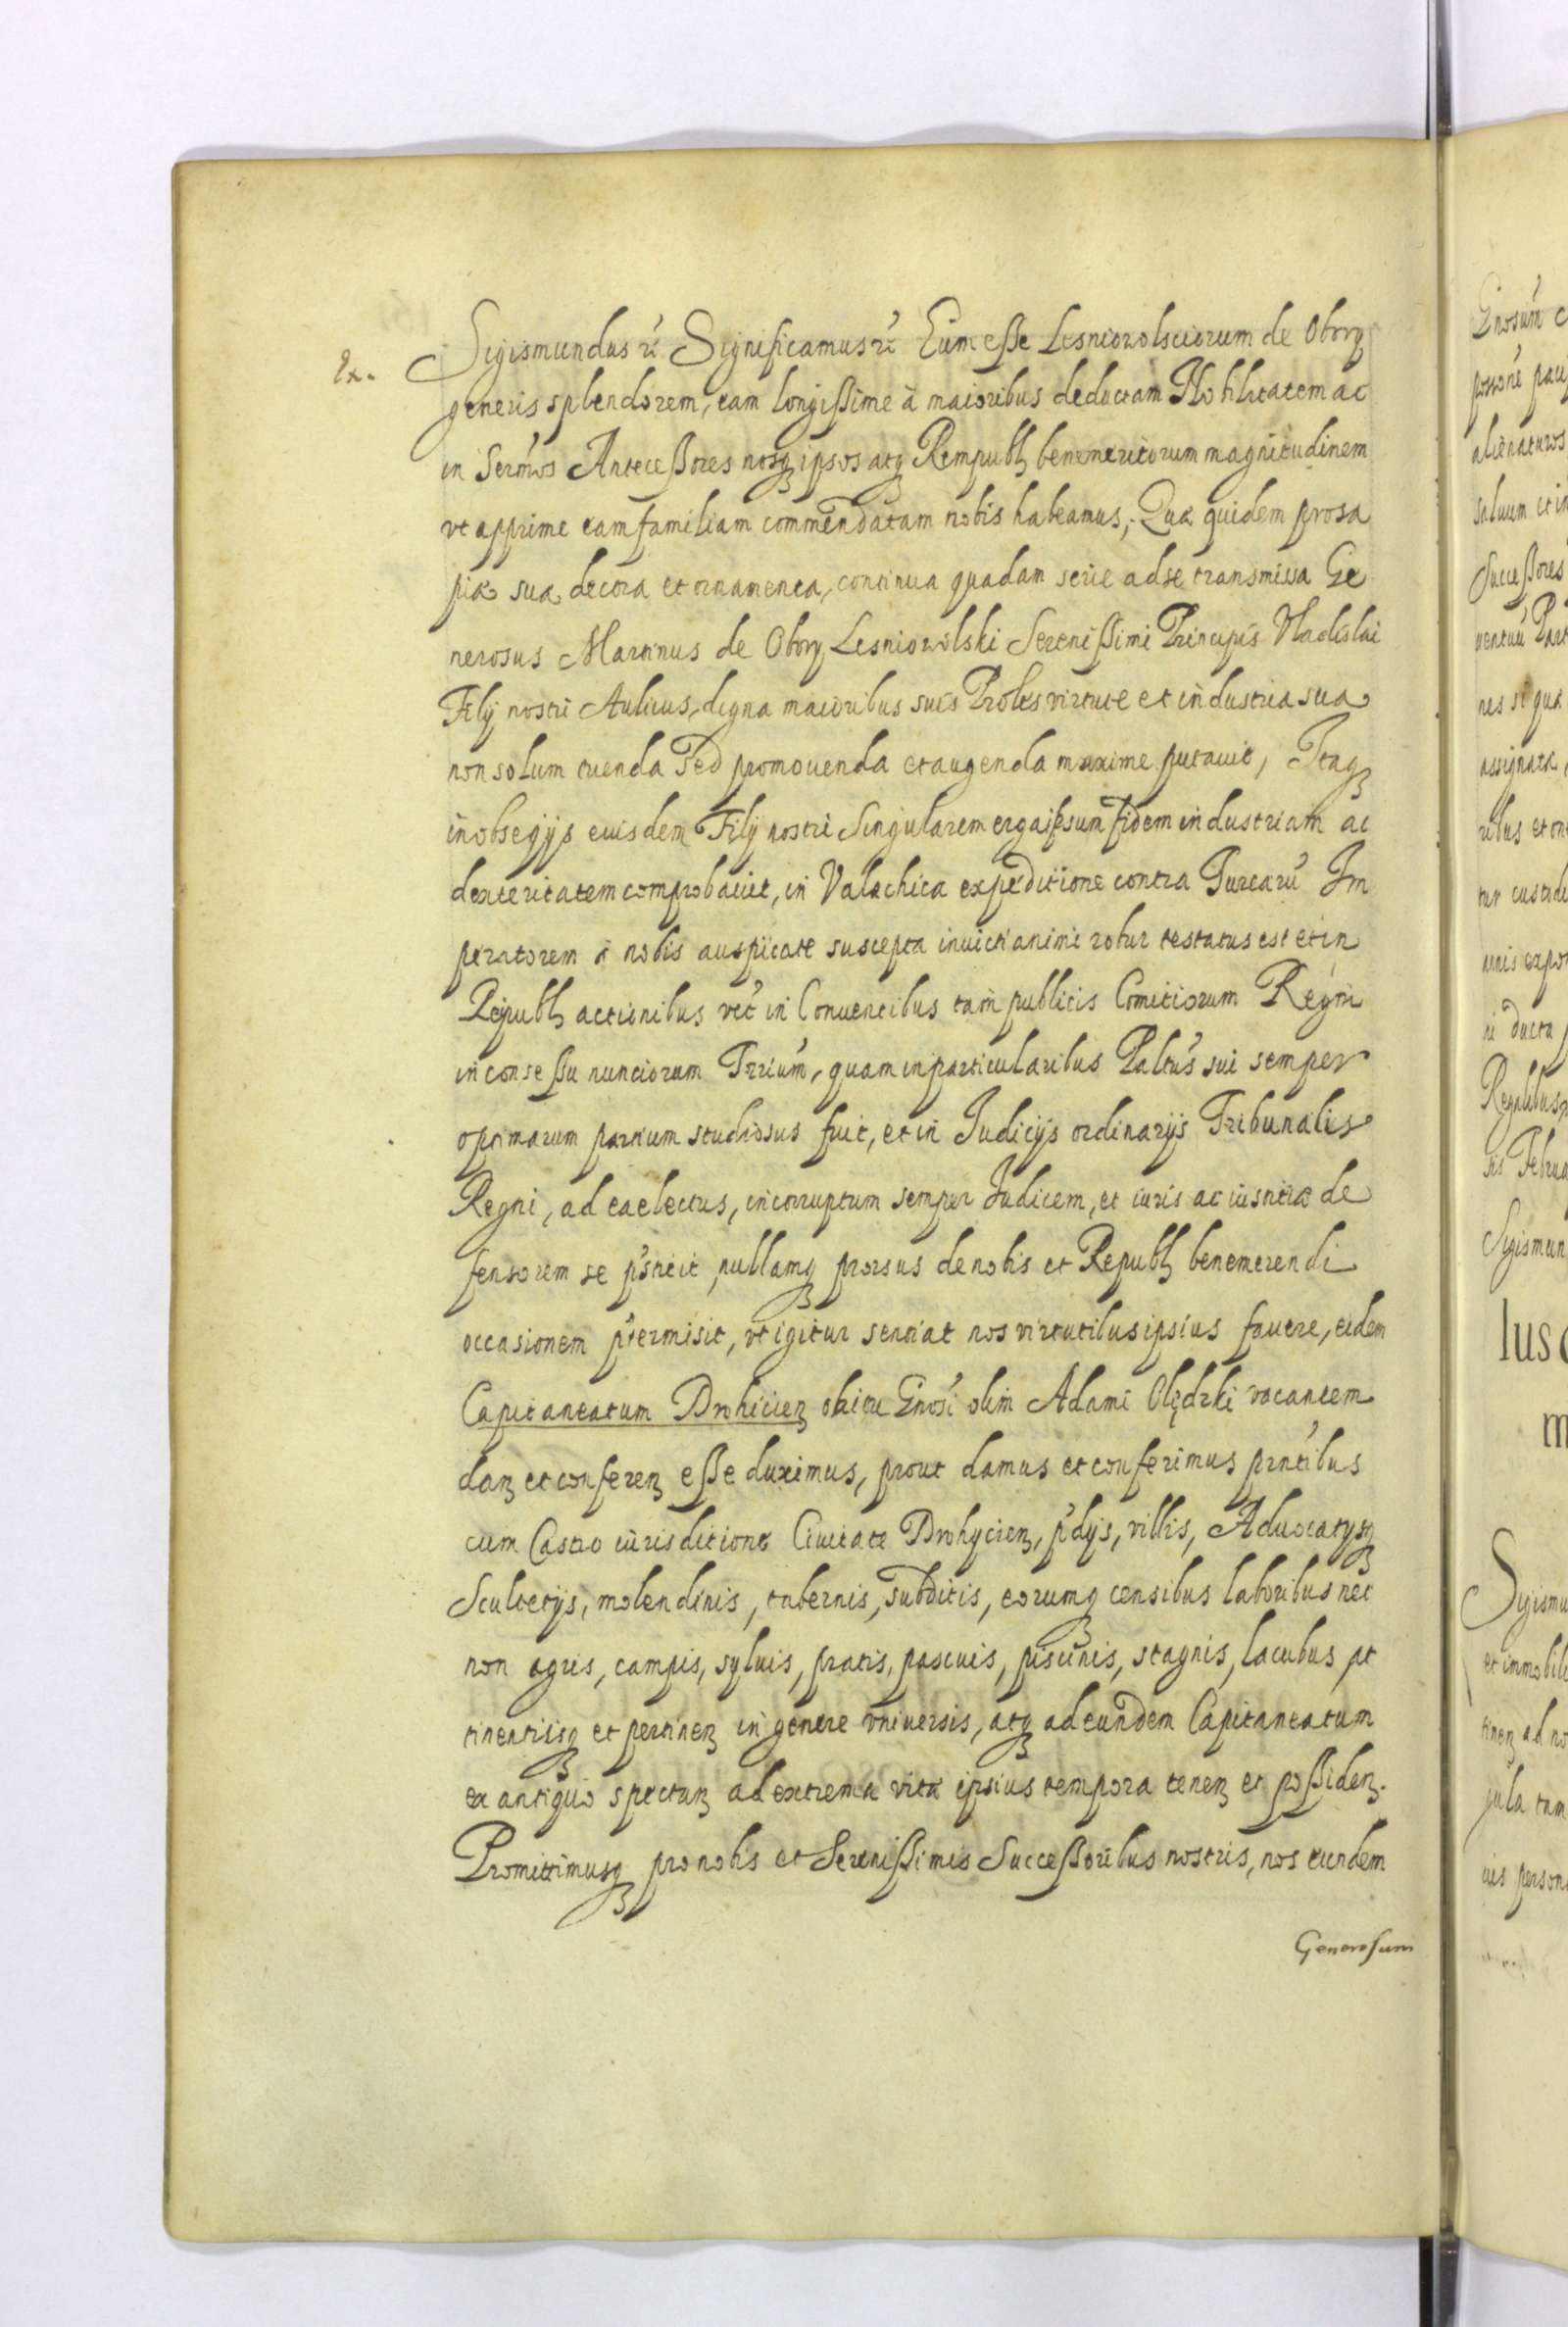 Ex.
Sigismundus rć Significamus rć Eum esse Lesniowolsciorum de Obory
generis splendorem, eam longissime à maioribus deductam Nobilitatem ac
in Sermos Antecessores nosq ipsos atq Rempubl benemeritorum magnitudinem
vt apprime eam familiam commendatam nobis habeamus; Quæ quidem prosa
piæ suæ decora et ornamenta, continua quadam serie ad se transmissa Ge
nerosus Martinus de Obory Lesniowolski Serenissimi Principis Vladislai
Filij nostri Aulicus, digna maioribus suis Proles virtute et industria sua
non solum tuenda Sed promouenda et augenda maxime putauit, Itaq
in obseqijs eiusdem Filij nostri Singularem erga ipsum fidem industriam ac
dexteritatem comprobauit, in Valachica expeditione contra Turcarū Im
peratorem à nobis auspicate suscepta inuicti animi robur testatus est et in
Reipubl actionibus vt in Conuentibus tam publicis Comitiorum Regni
in consessu nunciorum Trrium, quam in particularibus Paltus sui semper
optimarum partium studiosus fuit, et in Iudicijs ordinarijs Tribunalis
Regni, ad ea electus, incorruptum semper Iudicem, et iuris ac iustitiæ de
fensorem se pstitit, nullamq prorsus de nobis et Republ benemerendi
occasionem ptermisit, vt igitur sentiat nos virtutibus ipsius fauere, eidem
Capitaneatum Drohicien obitu Gnosi olim Adami Olędzki vacantem
dan et conferen esse duximus, prout damus et conferimus pntibus
cum Castro iurisditione Ciuitate Drohycien, pdijs, villis, Aduocatijsq
Scultetijs, molendinis, tabernis, subditis, eorumq censibus laboribus nec
non agris, campis, syluis, pratis, pascuis, piscinis, stagnis, lacubus, at
tinentiisq et pertinen in genere vniuersis, atq ad eundem Capitaneatum
ex antiquo spectan ad extrema vitæ ipsius tempora tenen et possiden.
Promittimusq pro nobis et Serenissimis Successoribus nostris, nos eundem
Generosum